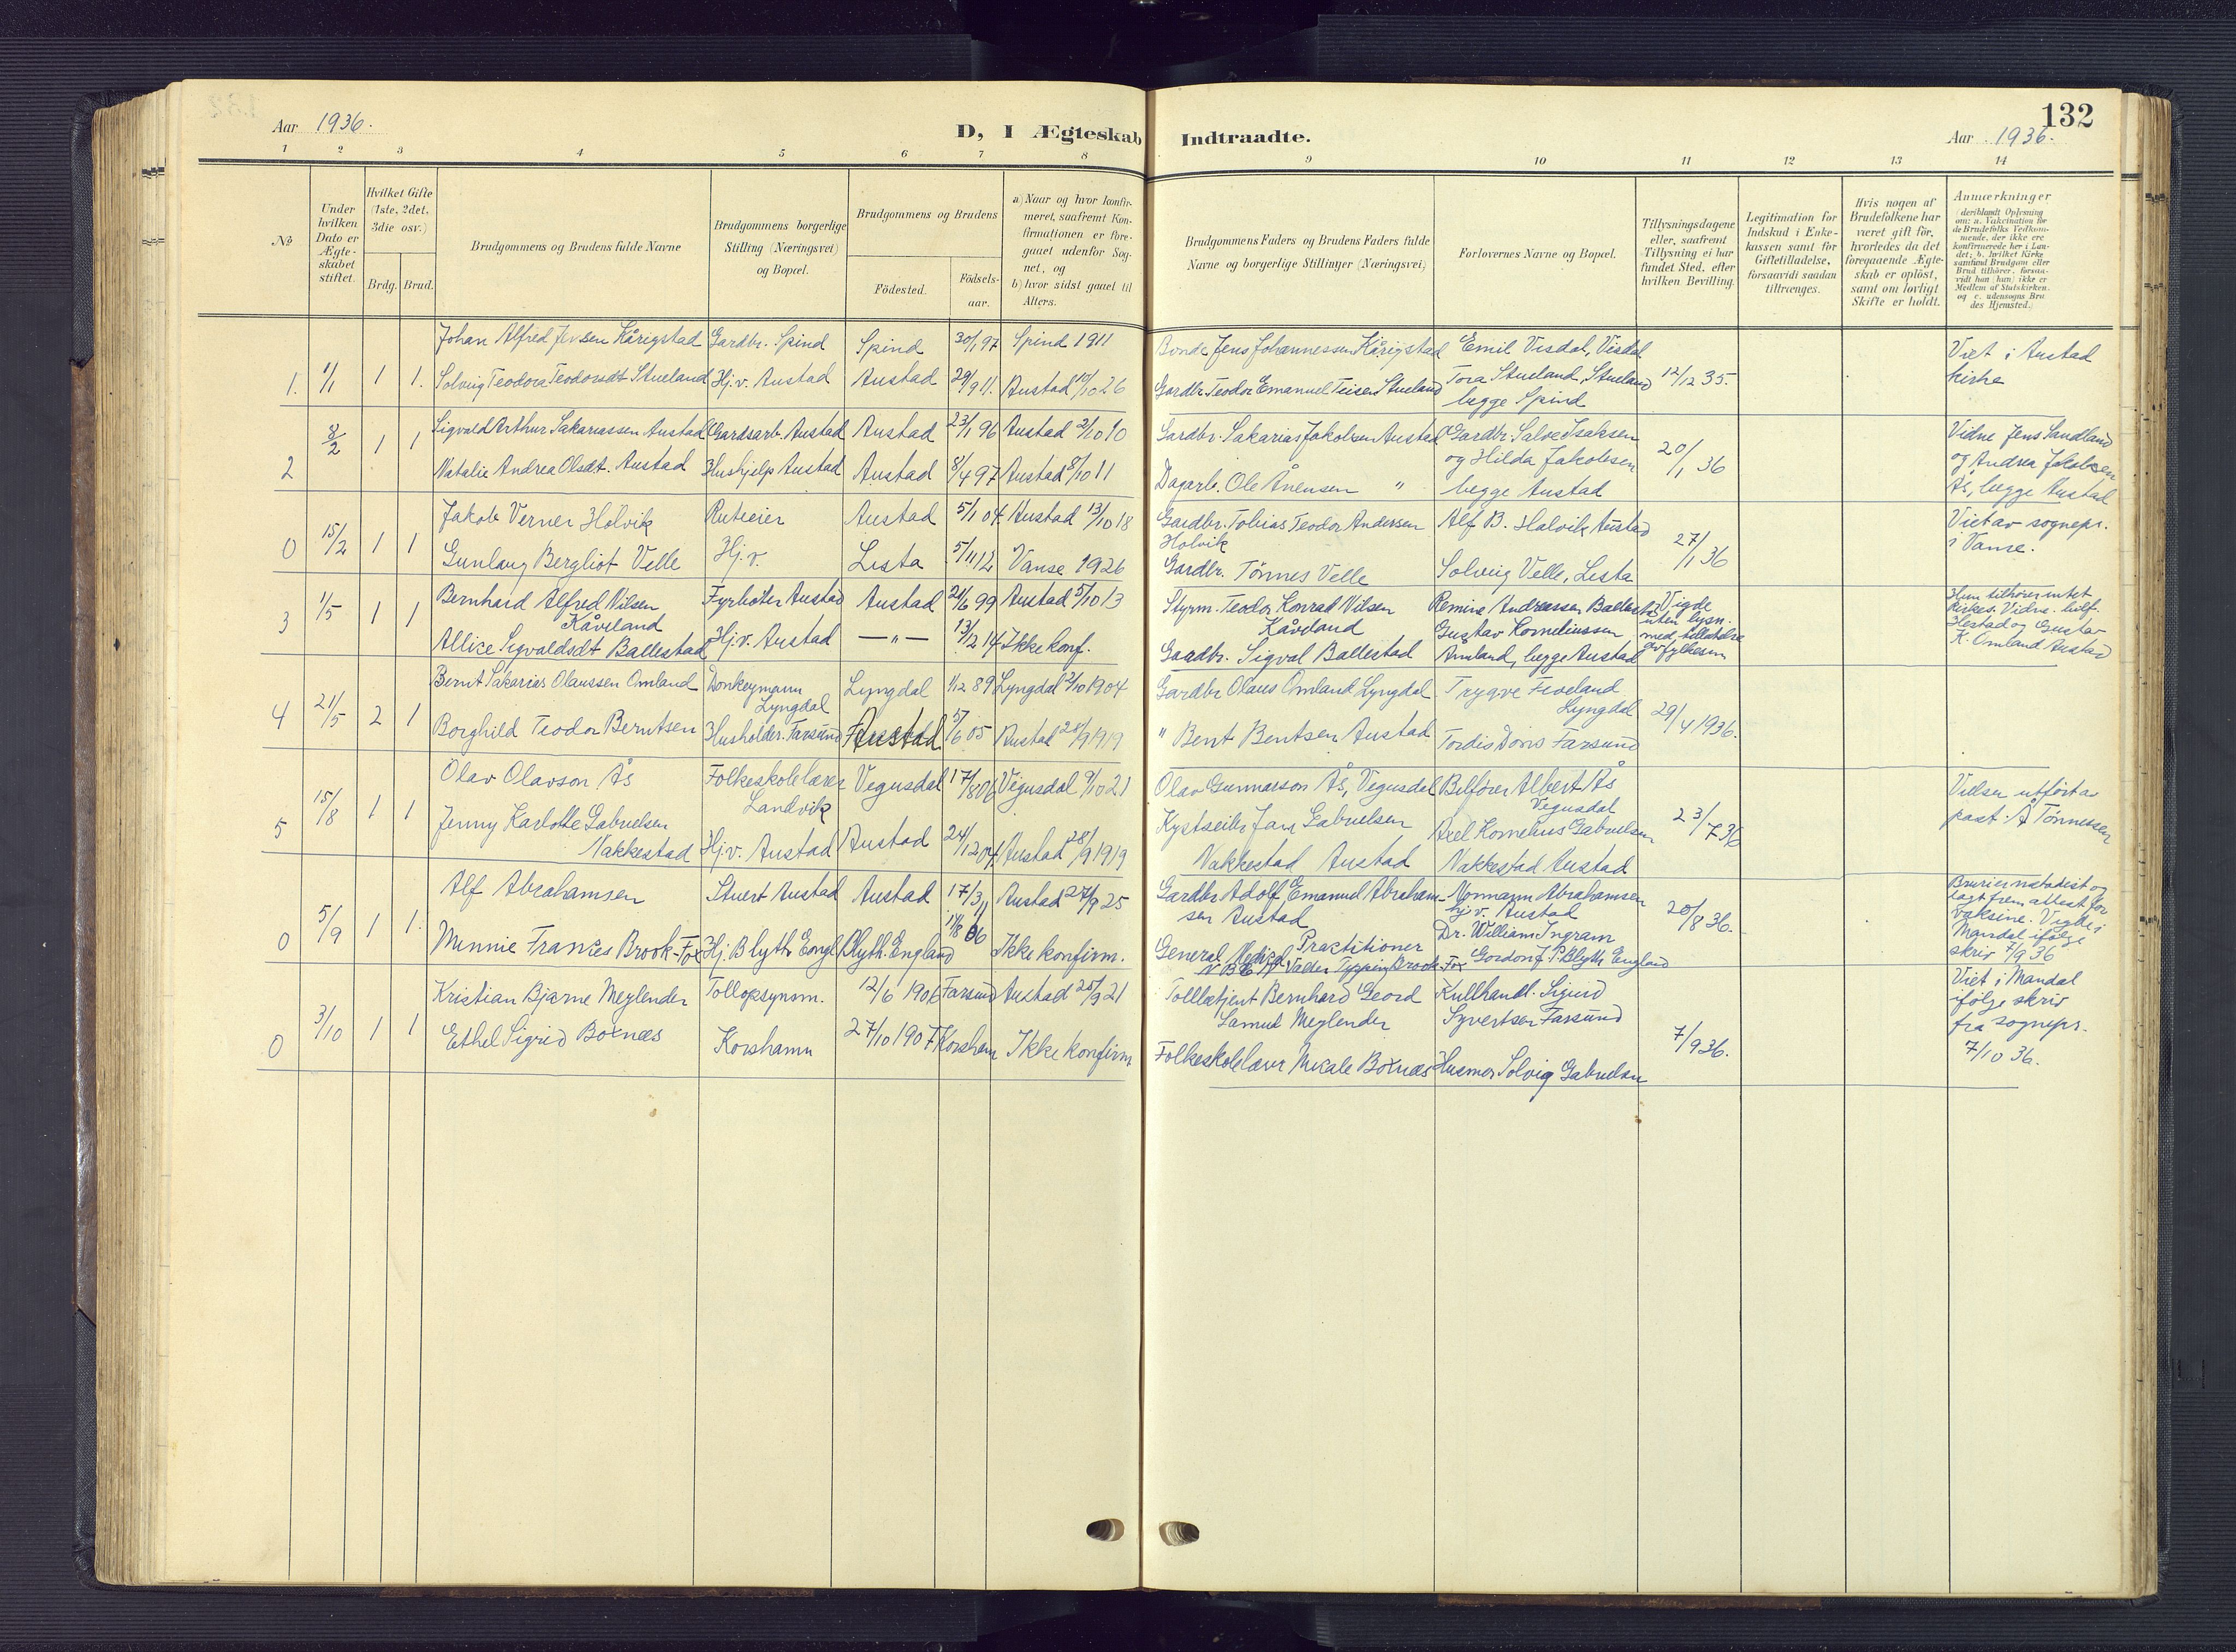 132
Aar 1936.
D, I Ægteskab Indtraadte.
Aar 1936.
1 2 3 4 5 6 7 8 9 10 11 12 13 14
No
Under hvilken Dato er Ægteskabet stiftet.
Hvilket Gifte (1ste, 2det, 3die osv.)
Brdg. Brud.
Brudgommens og Brudens fulde Navne
Brudgommens borgerlige Stilling (Næringsvei) og Bopæl.
Brudgommens og Brudens
Födested.
Födsels-aar.
a) Naar og hvor konfirmeret, saafremt Konfirmationen er foregaaet udenfor Sognet, og
b) hvor sidst gaaet til Alters.
Brudgommens Faders og Brudens Faders fulde Navne og borgerlige Stillinger (Næringsvei)
Forlovernes Navne og Bopæl.
Tillysningsdagene eller, saafremt Tillysning ei har fundet Sted, efter hvilken Bevilling.
Legitimation for Indskud i Enkekassen samt for Giftetilladelse, forsaavidt saadan tiltrænges.
Hvis nogen af Brudefolkene har været gift för, hvorledes da det foregaaende Ægteskab er oplöst, samt om lovligt Skifte er holdt.
Anmærkninger
deriblandt Oplysning om: a. Vakcination for de Brudefolks Vedkommende, der ikke ere konfirmerede her i Landet; b. hvilket Kirkesamfund Brudgom eller Brud tilhörer, forsaavidt han (hun) ikke er Medlem af Statskirken, og c. udensogns Brudes Hjemsted.
1. 1/1 1 1.
Johan Alfred Jensen Kårigstad Gardbr. Spind Spind 30/1 97 Spind 1911
Solveig Teodora Teodorsdt Stueland Hj.v. Austad Austad 29/9 11. Austad 10/10 26
Bonde Jens Johannessen Kårigstad Emil Visdal, Visdal
Gardbr. Teodor Emanuel Stueland Tora Stueland, Stueland
begge Spind
12/12 35.
Viet i Austad
kirke
2 8/2 1 1
Sigvald Arthur Sakariassen Austad Gardsarb. Austad Austad 23/1 96 Austad 2/10 10
Natalie Andrea Olsdt. Austad Hushjelp Austad Austad 8/4 97 Austad 8/10 11
Gardbr. Sakarias Jakobsen Austad Gardbr. Salve Isaksen
og Hilda Jakobsen
Dagarb. Ole Ånensen " begge Austad
20/1 36
Vidne Jens Sandland
og Andrea Jakobsen
Ås, begge Austad
0 15/2 1 1
Jakob Verner Holvik Ruteeier Austad 5/1 04. Austad 13/10 18
Gunlaug Bergliot Velle Hj.v. Lista 5/11 12 Vanse 1926
Gardbr. Tobias Teodor Andersen Alf B. Halvik Austad
Holvik
Gardbr. Tönnes Velle Solveig Velle, Lista
27/1 36
Viet av sognepr.
i Vanse.
3 1/5 1 1
Bernhard Alfred Nilsen Fyrböter Austad Austad 21/6 99 Austad 5/10 13
Kåveland
Allice Sigvaldsdt Ballestad Hj.v. Austad — " — 13/2 14 Ikke konf.
Styrm. Teodor Konrad Nilsen Remine Andreassen Ballestad
Kåveland Gustav Korneliussen
Gardbr. Sigval Ballestad Åmland, begge Austad
Vigde
uten lysn.
med tillatelse
av fylkesm
Hun tilhörer intet
kirkes. Vidne.
og Gustav
K. Omland Austad
4 21/5 2 1
Bernt Sakarias Olaussen Omland Donkeymann Lyngdal 1/12 89 Lyngdal 2/10 1904
Lyngdal
Borghild Teodor Berntsen Husholder. Farsund Austad 5/6 05 Austad 28/9 1919
Gardbr Olaus Omland Lyngdal Trygve Fiveland
Lyngdal
" Bent Bentsen Austad Tordis Doris Farsund
29/4 1936.
5 15/8 1 1
Olav Olavson Ås Folkeskolelærer Vegusdal 17/8 06 Vegusdal 9/10 21
Landvik
Jenny Karlotte Gabrielsen
Nakkestad Hj.v. Austad Austad 24/12 04 Austad 28/9 1919
Olav Gunnarson Ås, Vegusdal Bilförer Albert Ås
Vegusdal
Kystseiler Jan Gabrielsen Axel Kornelius Gabrielsen
Nakkestad Austad Nakkestad Austad
23/7 36
Vielsen utfört av
past. Å Tönnessen
0 5/9 1 1.
Alf Abrahamsen Stuert Austad Austad 17/3 11 Austad 27/9 25
Minnie Frances Brook-Fox Hj. Blyth Engl Blyth. England 17/8 06 Ikke konfirm.
Gardbr Adolf Emanuel Abraham- Normann Abrahamsen
sen Austad hj v. Austad
General Medical Practitioner Dr. William Ingram
Valter Brook-Fox Gordon J.P. Blyth England
20/8 36.
Brur er metodist og
lagt frem attest for
vaksine. Vigde i
Mandal ifölge
skriv 7/9 36
0 3/10 1 1
Kristian Bjarne Meglender Tollopsynsm. 12/6 1906 Farsund Austad 25/9 21
Ethel Sigrid Boknæs Korshamn 27/10 1907 Korshamn Ikke konfirm
Tollbetjent Bernhard Georg Kullhandl. Sigurd
Samuel Meglender Syvertsen Farsund
Folkeskolelærer Mikale Boknæs Husmor Solvig Gabrielsen
7/9 36.
Viet i Mandal
ifölge skriv
fra sognepr.
7/10 36.